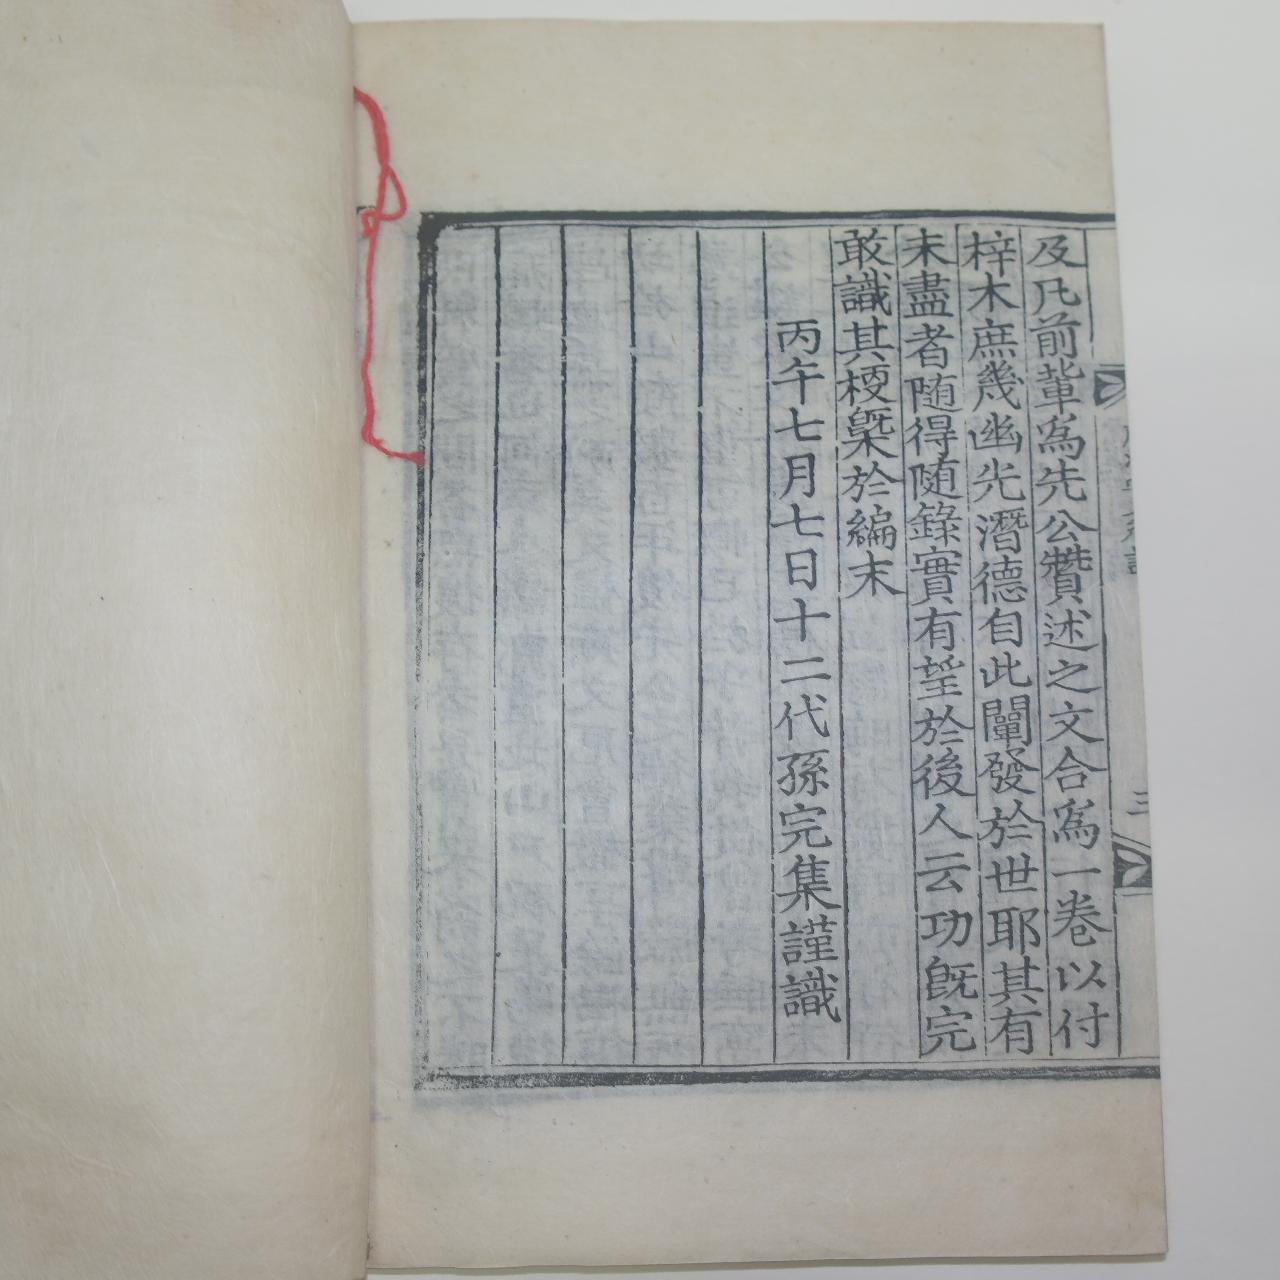 及凡前輩爲先公贊述之文合爲一卷以付
梓木庶幾幽光潛德自此闡發於世耶其有
未盡者随得随錄實有望於後人云功旣完
敢識其梗槩於編末
丙午七月七日十二代孫完集謹識